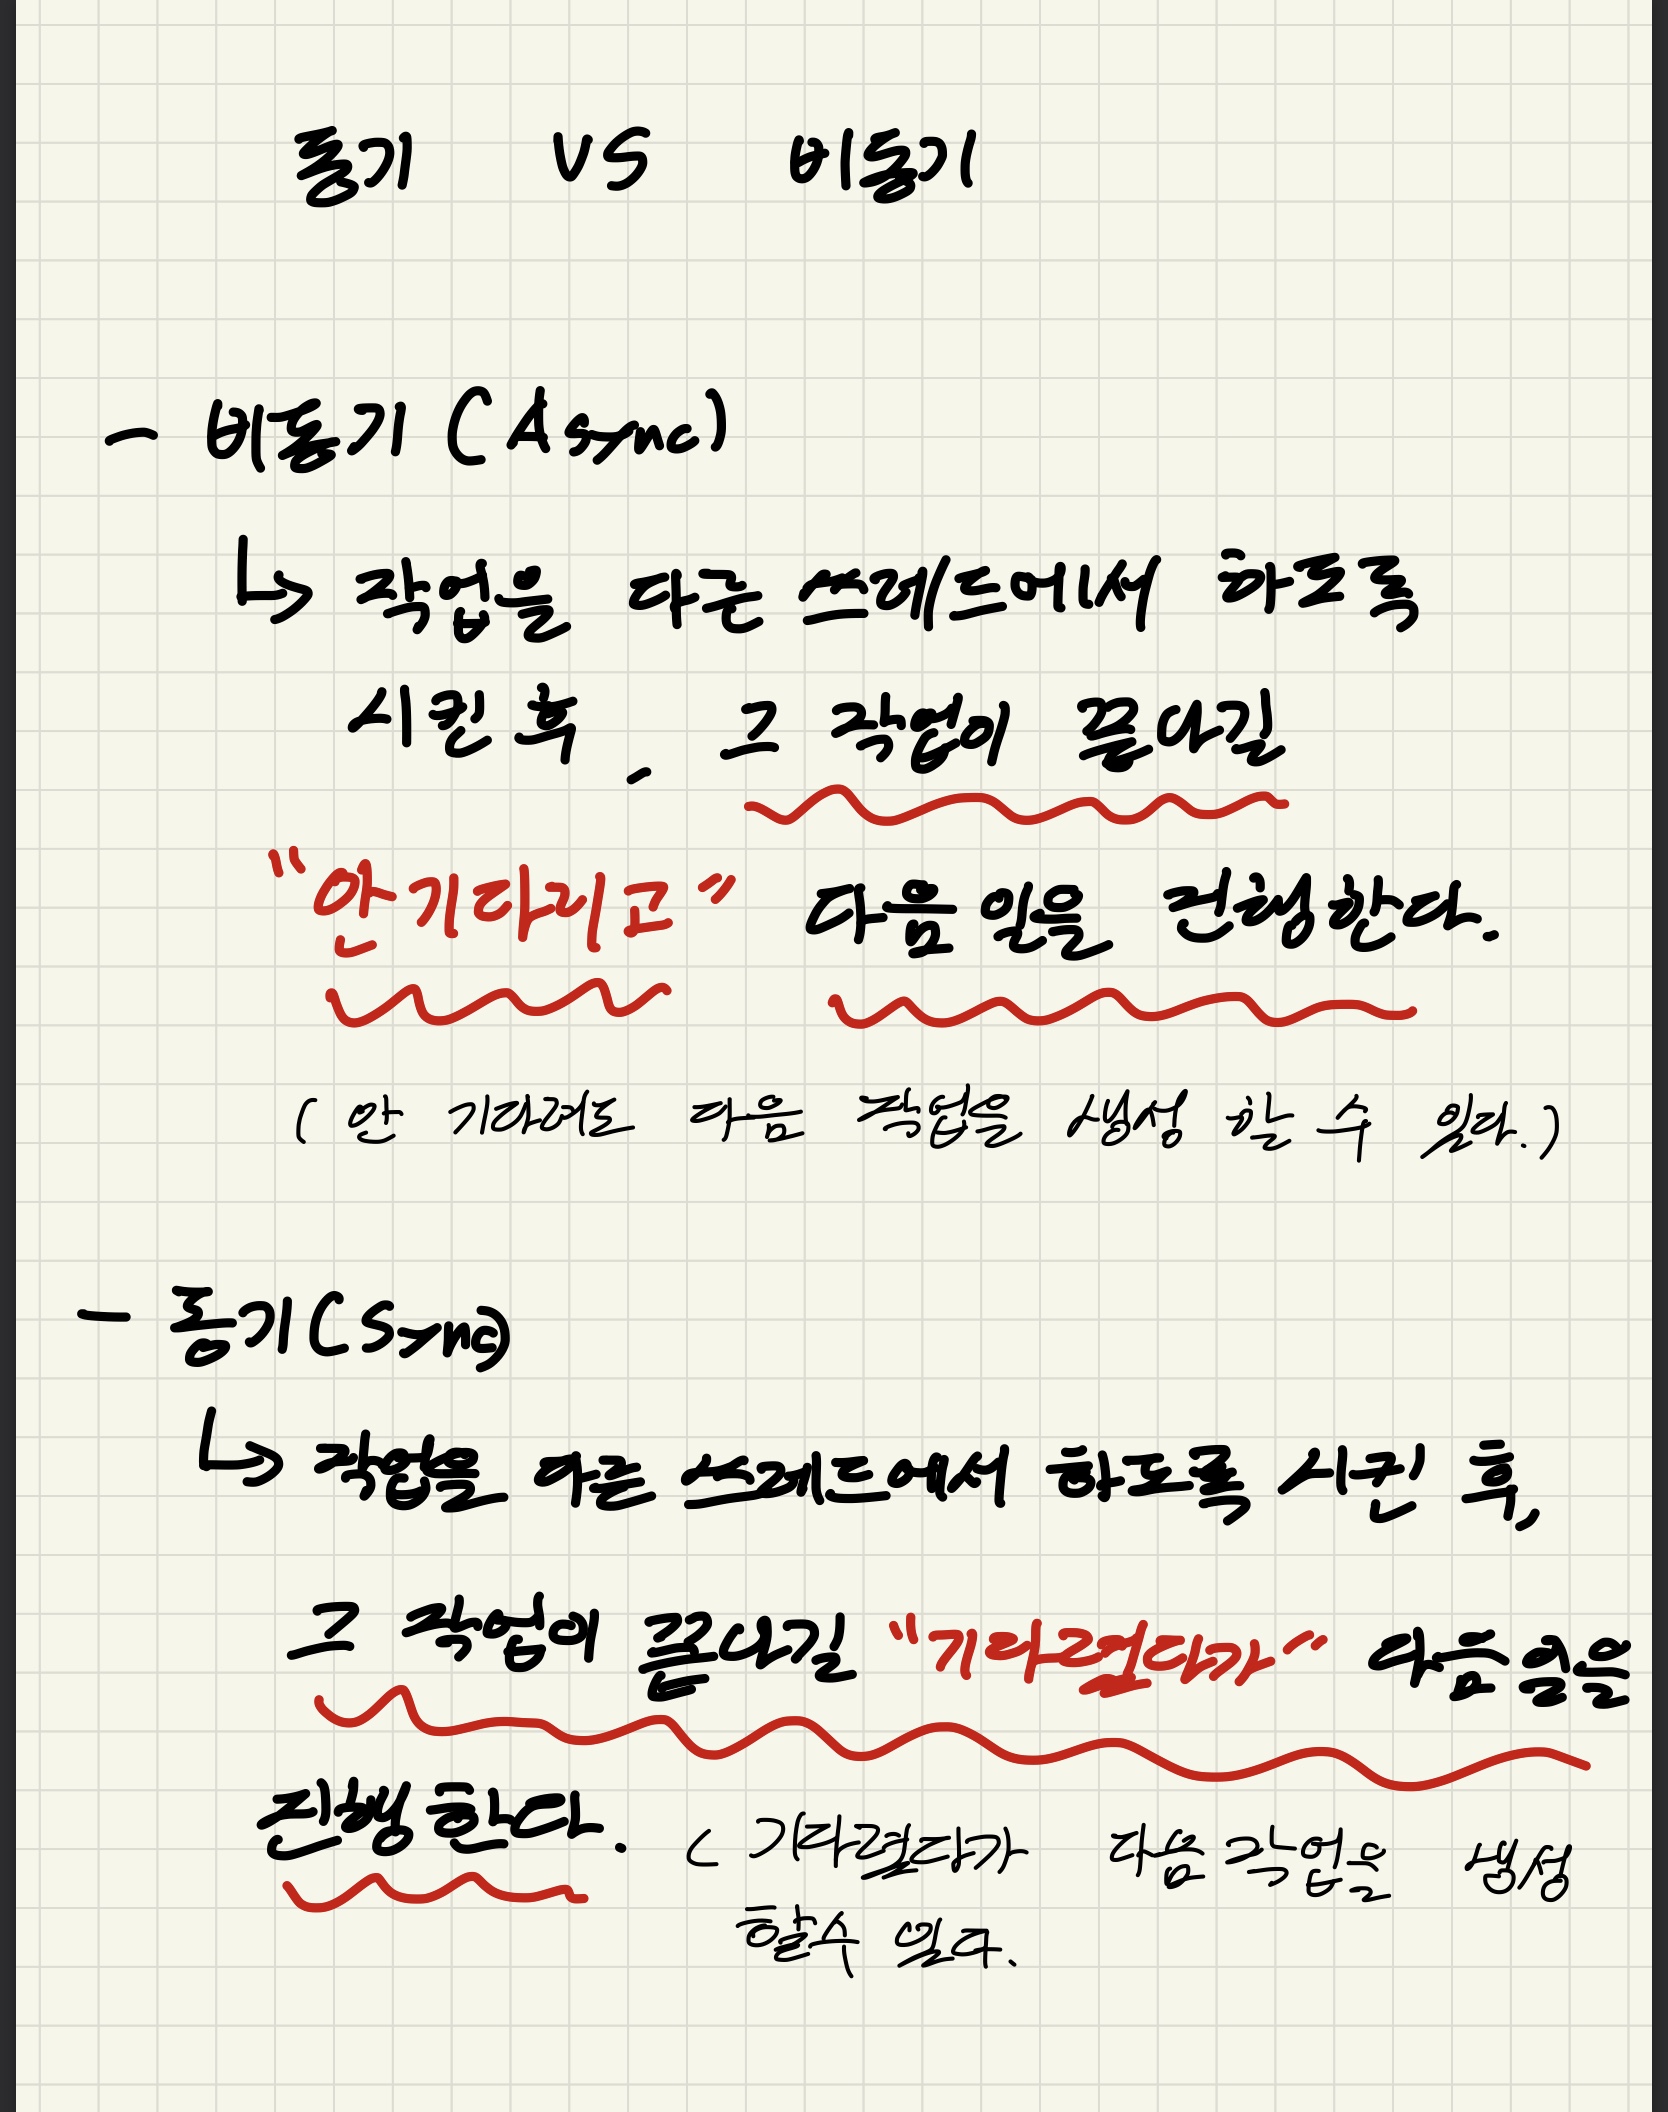 동기 VS 비동기
- 비동기 (Async)
↳ 작업을 다른 쓰레드에서 하도록
시킨 후, 그 작업이 끝나길
"안기다리고" 다음 일을 진행한다.
( 안 기다려도 다음 작업을 생성 할 수 있다.)
- 동기(Sync)
↳ 작업을 다른 쓰레드에서 하도록 시킨 후,
그 작업이 끝나길 "기다렸다가" 다음 일을
진행한다. ( 기다렸다가 다음 작업을 생성
할수 있다.